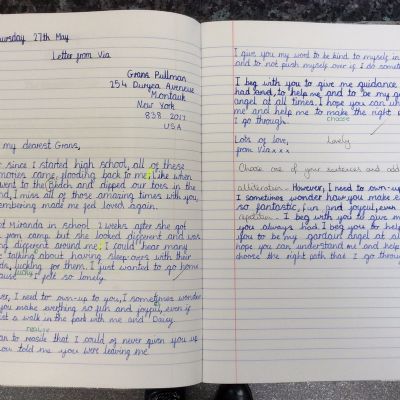 ursday 27th May
Letter from Via
Grans Pullman
254 Duryea Aveneue
Montauk
New York
838 2017
USA
my dearest Grans,
since I started high school, all of these
mories came flooding back to me; like when
went to the Beach and dipped our toes in the
nd, I miss all of those amazing times with you,
embering made me feel loved again.
d Miranda in school 2 weeks after she got
you camp but she looked different and was
ng different around me; I could hear many
e talking about having sleep-overs with their
nds, lucking for them. I just wanted to go home
lucky
ause I felt so lonely.
er, I need to own-up to you, I sometimes wonder
you make everthing so fun and joyful, even if
st a walk in the park with me and Daisy.
realise
an to reasile that I could of never given you up
you told me you were leaving me.
I give you my word to be kind to myself in
and to not push myself over if I do somet
I beg with you to give me guidance
had and, to help me and to be my g
angel at all times. I hope you can un
me and help me to make the right
choose
I go through.
Lots of love,
from Via x x x
Lovely
Choose one of your sentences and add
alliteration - However, I need to own-up
I sometimes wonder how you make e
so fantastic, fun and joyful, even
repetition - I beg with you to give m
you always had. I beg you to help
you to be my gardian angel at al
hope you can understand me and help
choose the right path that I go throug